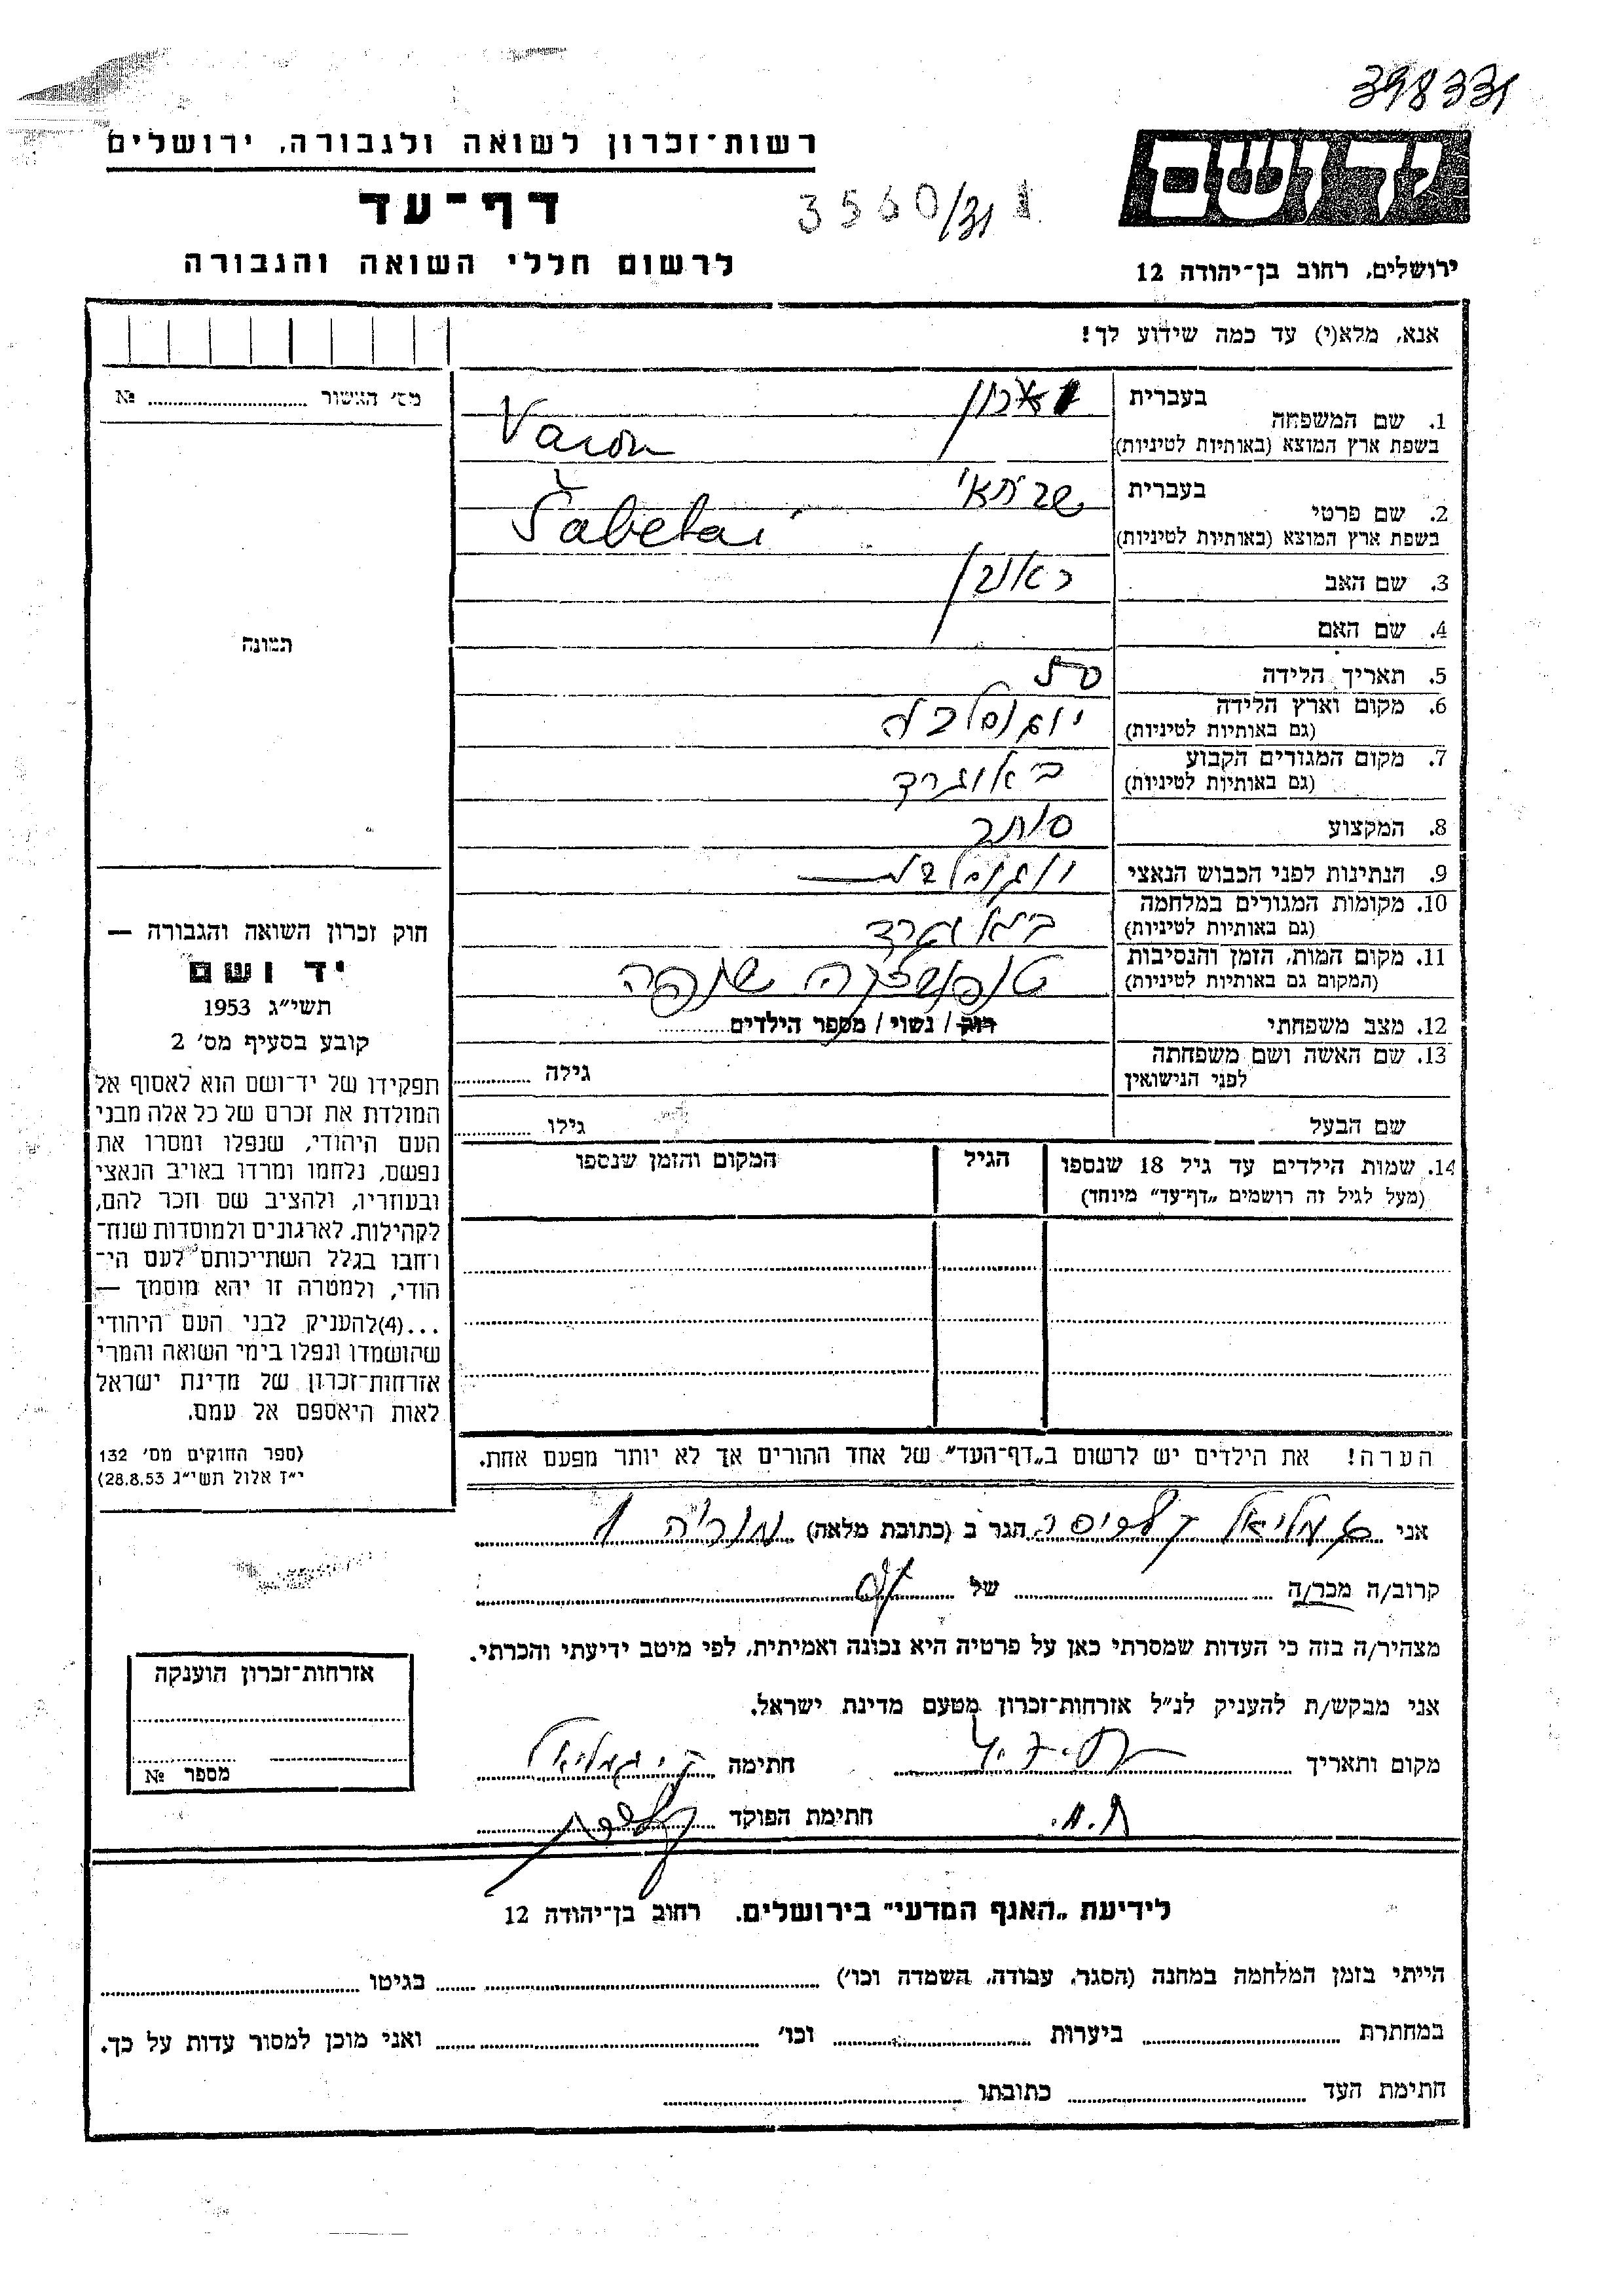 398331
ידושם
רשות־זכרון לשואה ולגבורה, ירושלים
דף־עד
3560/31
לרשום חללי השואה והגבורה
ירושלים, רחוב בן־יהודה 12
אנא, מלא(י) עד כמה שידוע לך!
מס׳ האשור № 
1. שם המשפחה
בעברית וארון
בשפת ארץ המוצא (באותיות לטיניות) Varon
2. שם פרטי
בעברית שבתאי
בשפת ארץ המוצא (באותיות לטיניות) Šabetai
3. שם האב ראובן
4. שם האם
5. תאריך הלידה 50
6. מקום וארץ הלידה יוגוסלביה
(גם באותיות לטיניות)
7. מקום המגורים הקבוע באוגרד
(גם באותיות לטיניות)
8. המקצוע סוחר
9. הנתינות לפני הכבוש הנאצי
10. מקומות המגורים במלחמה
(גם באותיות לטיניות)
11. מקום המות, הזמן והנסיבות
(המקום גם באותיות לטיניות)
12. מצב משפחתי רוק / נשוי / מספר הילדים
13. שם האשה ושם משפחתה
לפני הנישואין גילה
שם הבעל גילו
14. שמות הילדים עד גיל 18 שנספו הגיל המקום והזמן שנספו
(מעל לגיל זה רושמים „דף־עד” מיוחד)
הערה! את הילדים יש לרשום ב„דף־העד” של אחד ההורים אך לא יותר מפעם אחת.
תמונה
חוק זכרון השואה והגבורה —
יד ושם
תשי״ג 1953
קובע בסעיף מס׳ 2
תפקידו של יד־ושם הוא לאסוף אל
המולדת את זכרם של כל אלה מבני
העם היהודי, שנפלו ומסרו את
נפשם, נלחמו ומרדו באויב הנאצי
ובעוזריו, ולהציב שם וזכר להם,
לקהילות, לארגונים ולמוסדות שנח־
רבו בגלל השתייכותם לעם הי־
הודי, ולמטרה זו יהא מוסמך —
...(4)להעניק לבני העם היהודי
שהושמדו ונפלו בימי השואה והמרי
אזרחות־זכרון של מדינת ישראל
לאות היאספם אל עמם.
(ספר החוקים מס׳ 132
י״ז אלול תשי״ג 28.8.53)
אני גמליאל הגר ב (כתובת מלאה) מוריה
קרוב/ה מכר/ה של
מצהיר/ה בזה כי העדות שמסרתי כאן על פרטיה היא נכונה ואמיתית, לפי מיטב ידיעתי והכרתי.
אני מבקש/ת להעניק לנ״ל אזרחות־זכרון מטעם מדינת ישראל.
מקום ותאריך חתימה
ת.א. חתימת הפוקד
אזרחות־זכרון הוענקה
מספר №
לידיעת „האגף המדעי” בירושלים. רחוב בן־יהודה 12
הייתי בזמן המלחמה במחנה (הסגר, עבודה, השמדה וכו׳) בגיטו
במחתרת ביערות וכו׳ ואני מוכן למסור עדות על כך.
חתימת העד כתובתו